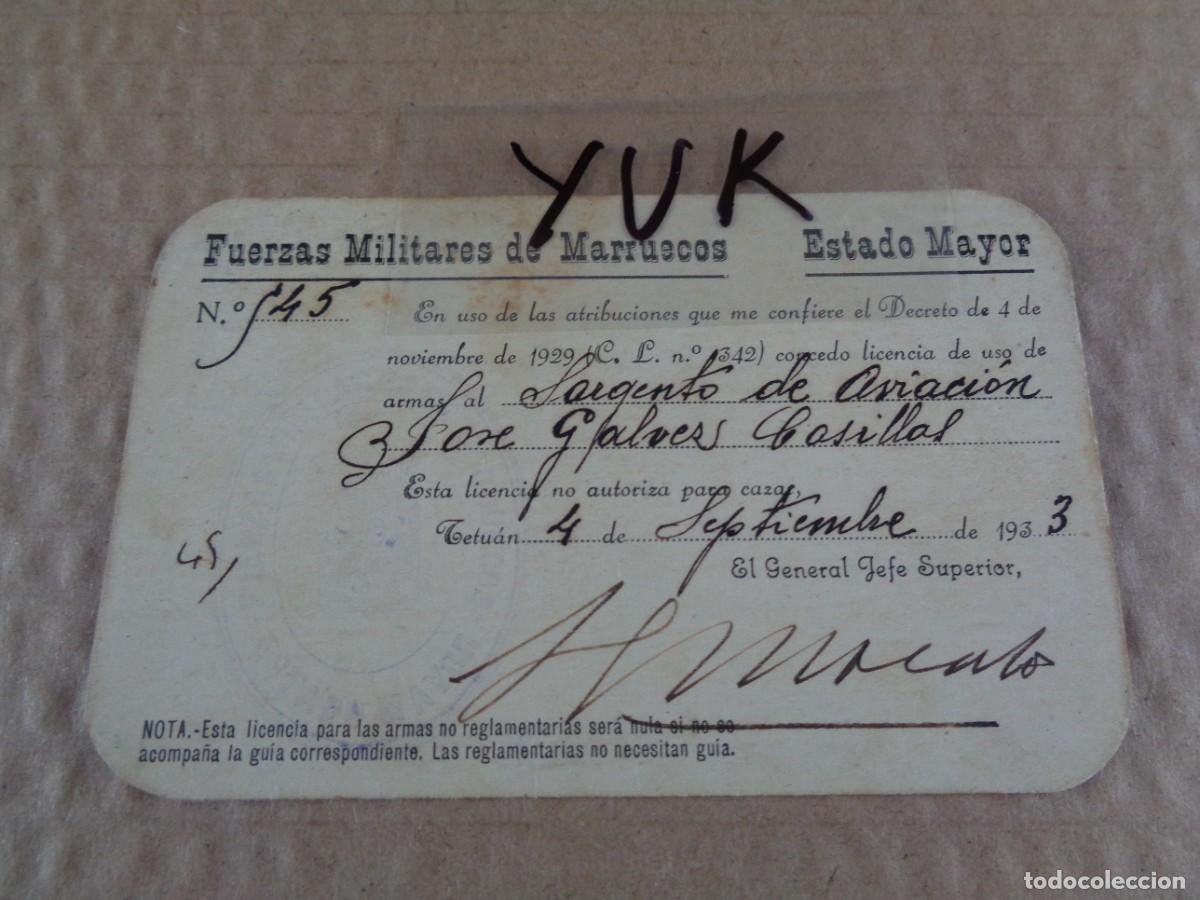 YUK
Fuerzas Militares de Marruecos Estado Mayor
N.º 545 En uso de las atribuciones que me confiere el Decreto de 4 de
noviembre de 1929 (C. L. n.º 342) concedo licencia de uso de
armas al Sargento de Aviación
José Galvez Casillas
Esta licencia no autoriza para cazar,
Tetuán 4 de Septiembre de 1933
45,
El General Jefe Superior,
NOTA.-Esta licencia para las armas no reglamentarias será nula si no se
acompaña la guía correspondiente. Las reglamentarias no necesitan guía.
todocoleccion